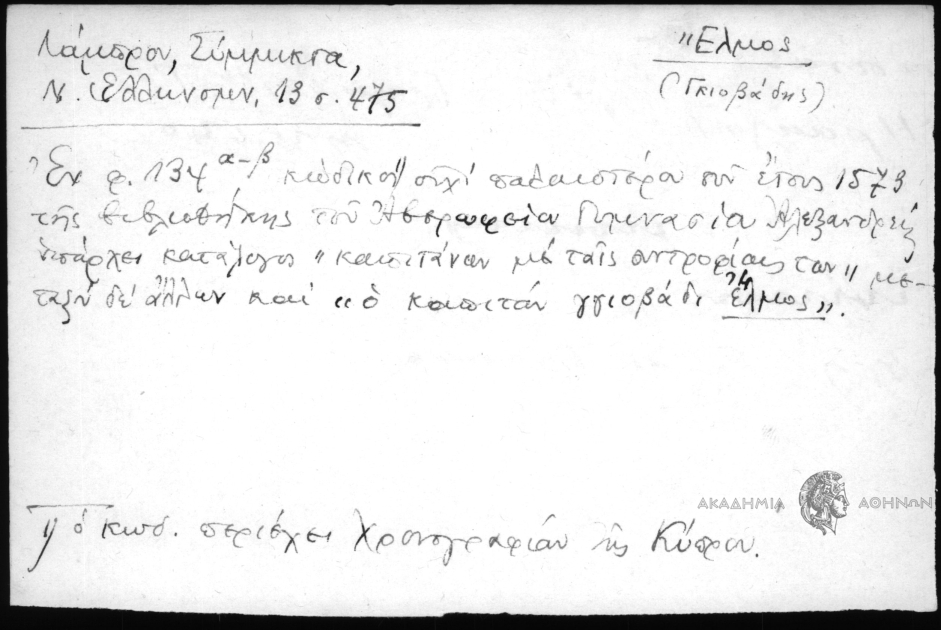 Λάμπρου, Σύμμικτα,
Ν. Ἑλληνομν. 13 σ. 475
"Ελμος
(Γκιοβάδης)
Ἐν φ. 134 α-β κώδικος 1) οὐχί παλαιοτέρου τοῦ ἔτους 1573
τῆς βιβλιοθήκης τοῦ Ἀβερωφείου Γυμνασίου Ἀλεξανδρείας
ὑπάρχει κατάλογος "καπιτάνων μέ ταῖς συντροφίαις των" με-
ταξύ δέ ἄλλων καί "ὁ καπιτάν γγιοβάδι Ἔλμος".
1) ὁ κώδ. περιέχει Χρονογραφίαν τῆς Κύπρου.
ΑΚΑΔΗΜΙΑ ΑΘΗΝΩΝ